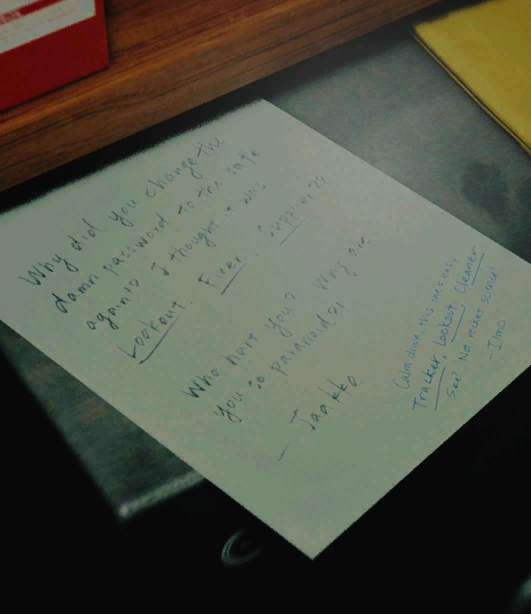 Why did you change the
damn password to the safe
again!? I thought it was
Lookout, Fixer, Supplier??
Who hurt you? Why are
you so paranoid?!
- Jaakko
Calm down, this one's easy
Tracker, Lookout, Cleaner
See? Not rocket science!
- Ilmo